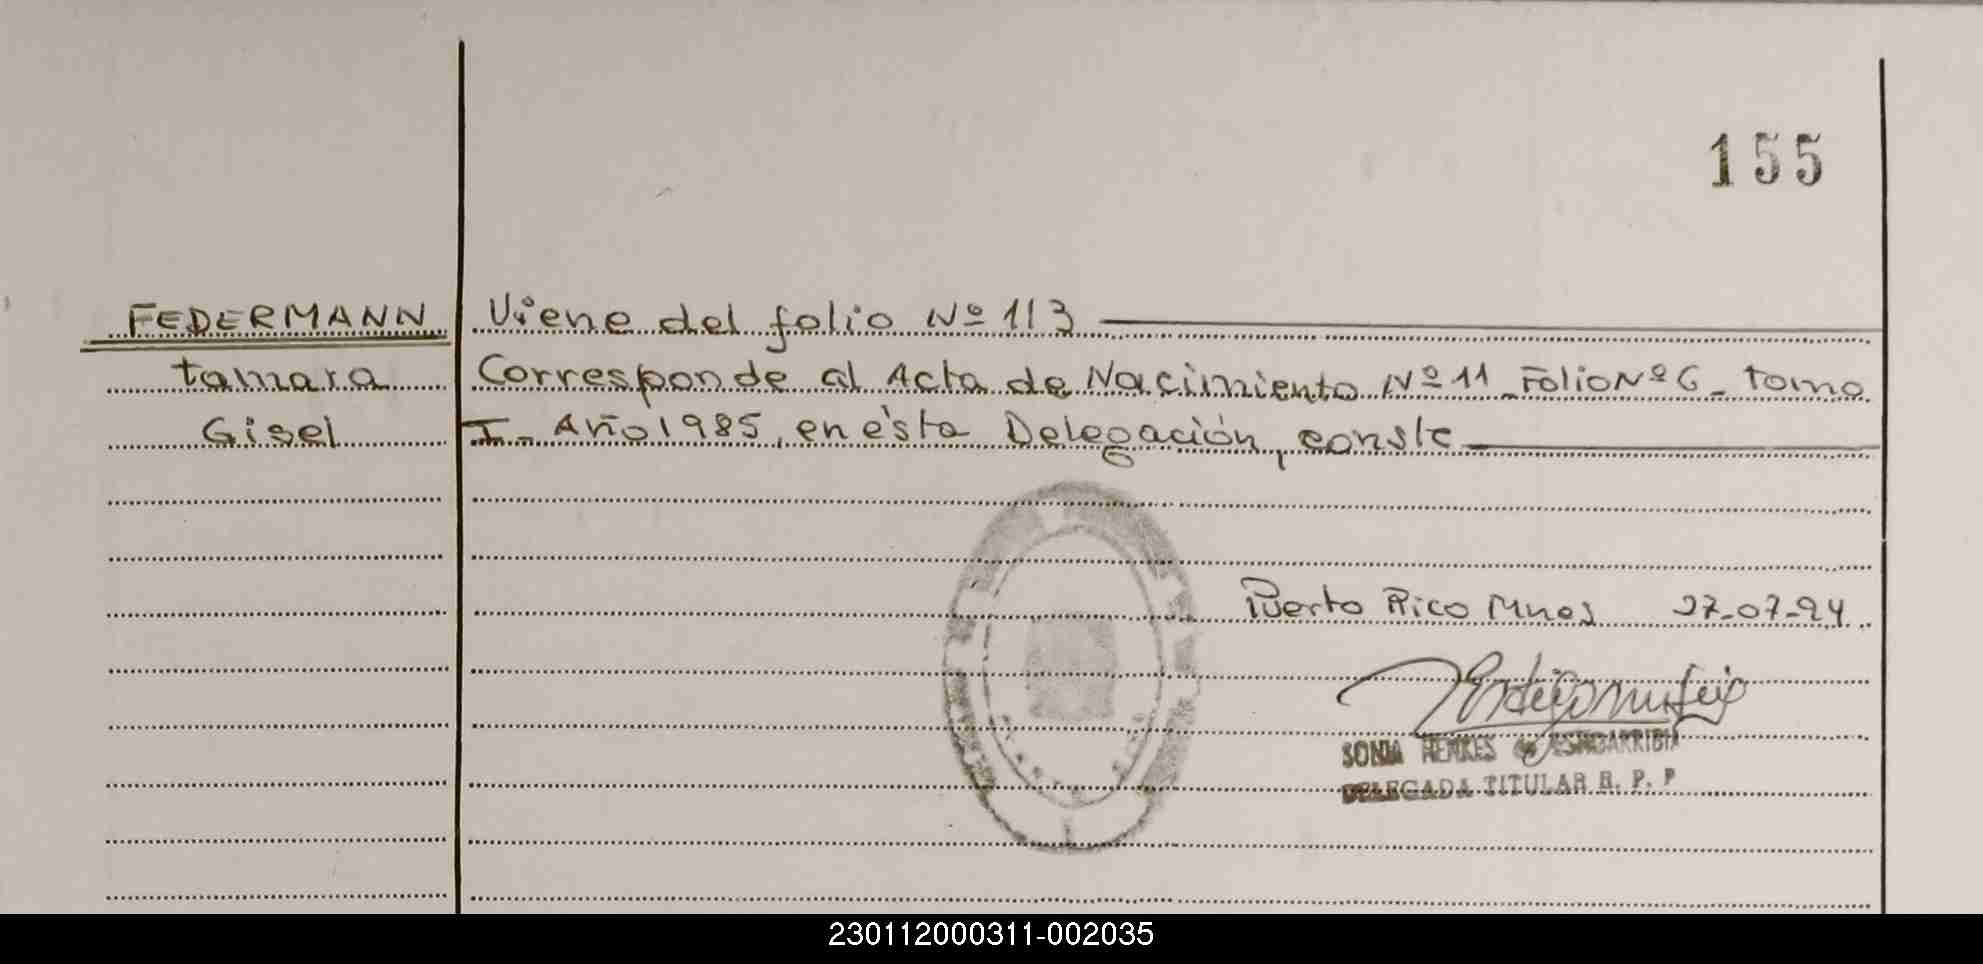 155
FEDERMANN Viene del folio Nº 113
tamara Corresponde al Acta de Nacimiento Nº 11 - Folio Nº 6 - tomo
Gisel I - Año 1985, en ésta Delegación, conste
Puerto Rico Mnes 27-07-94
SONIA HENKES de
DELEGADA TITULAR R. P. P
230112000311-002035